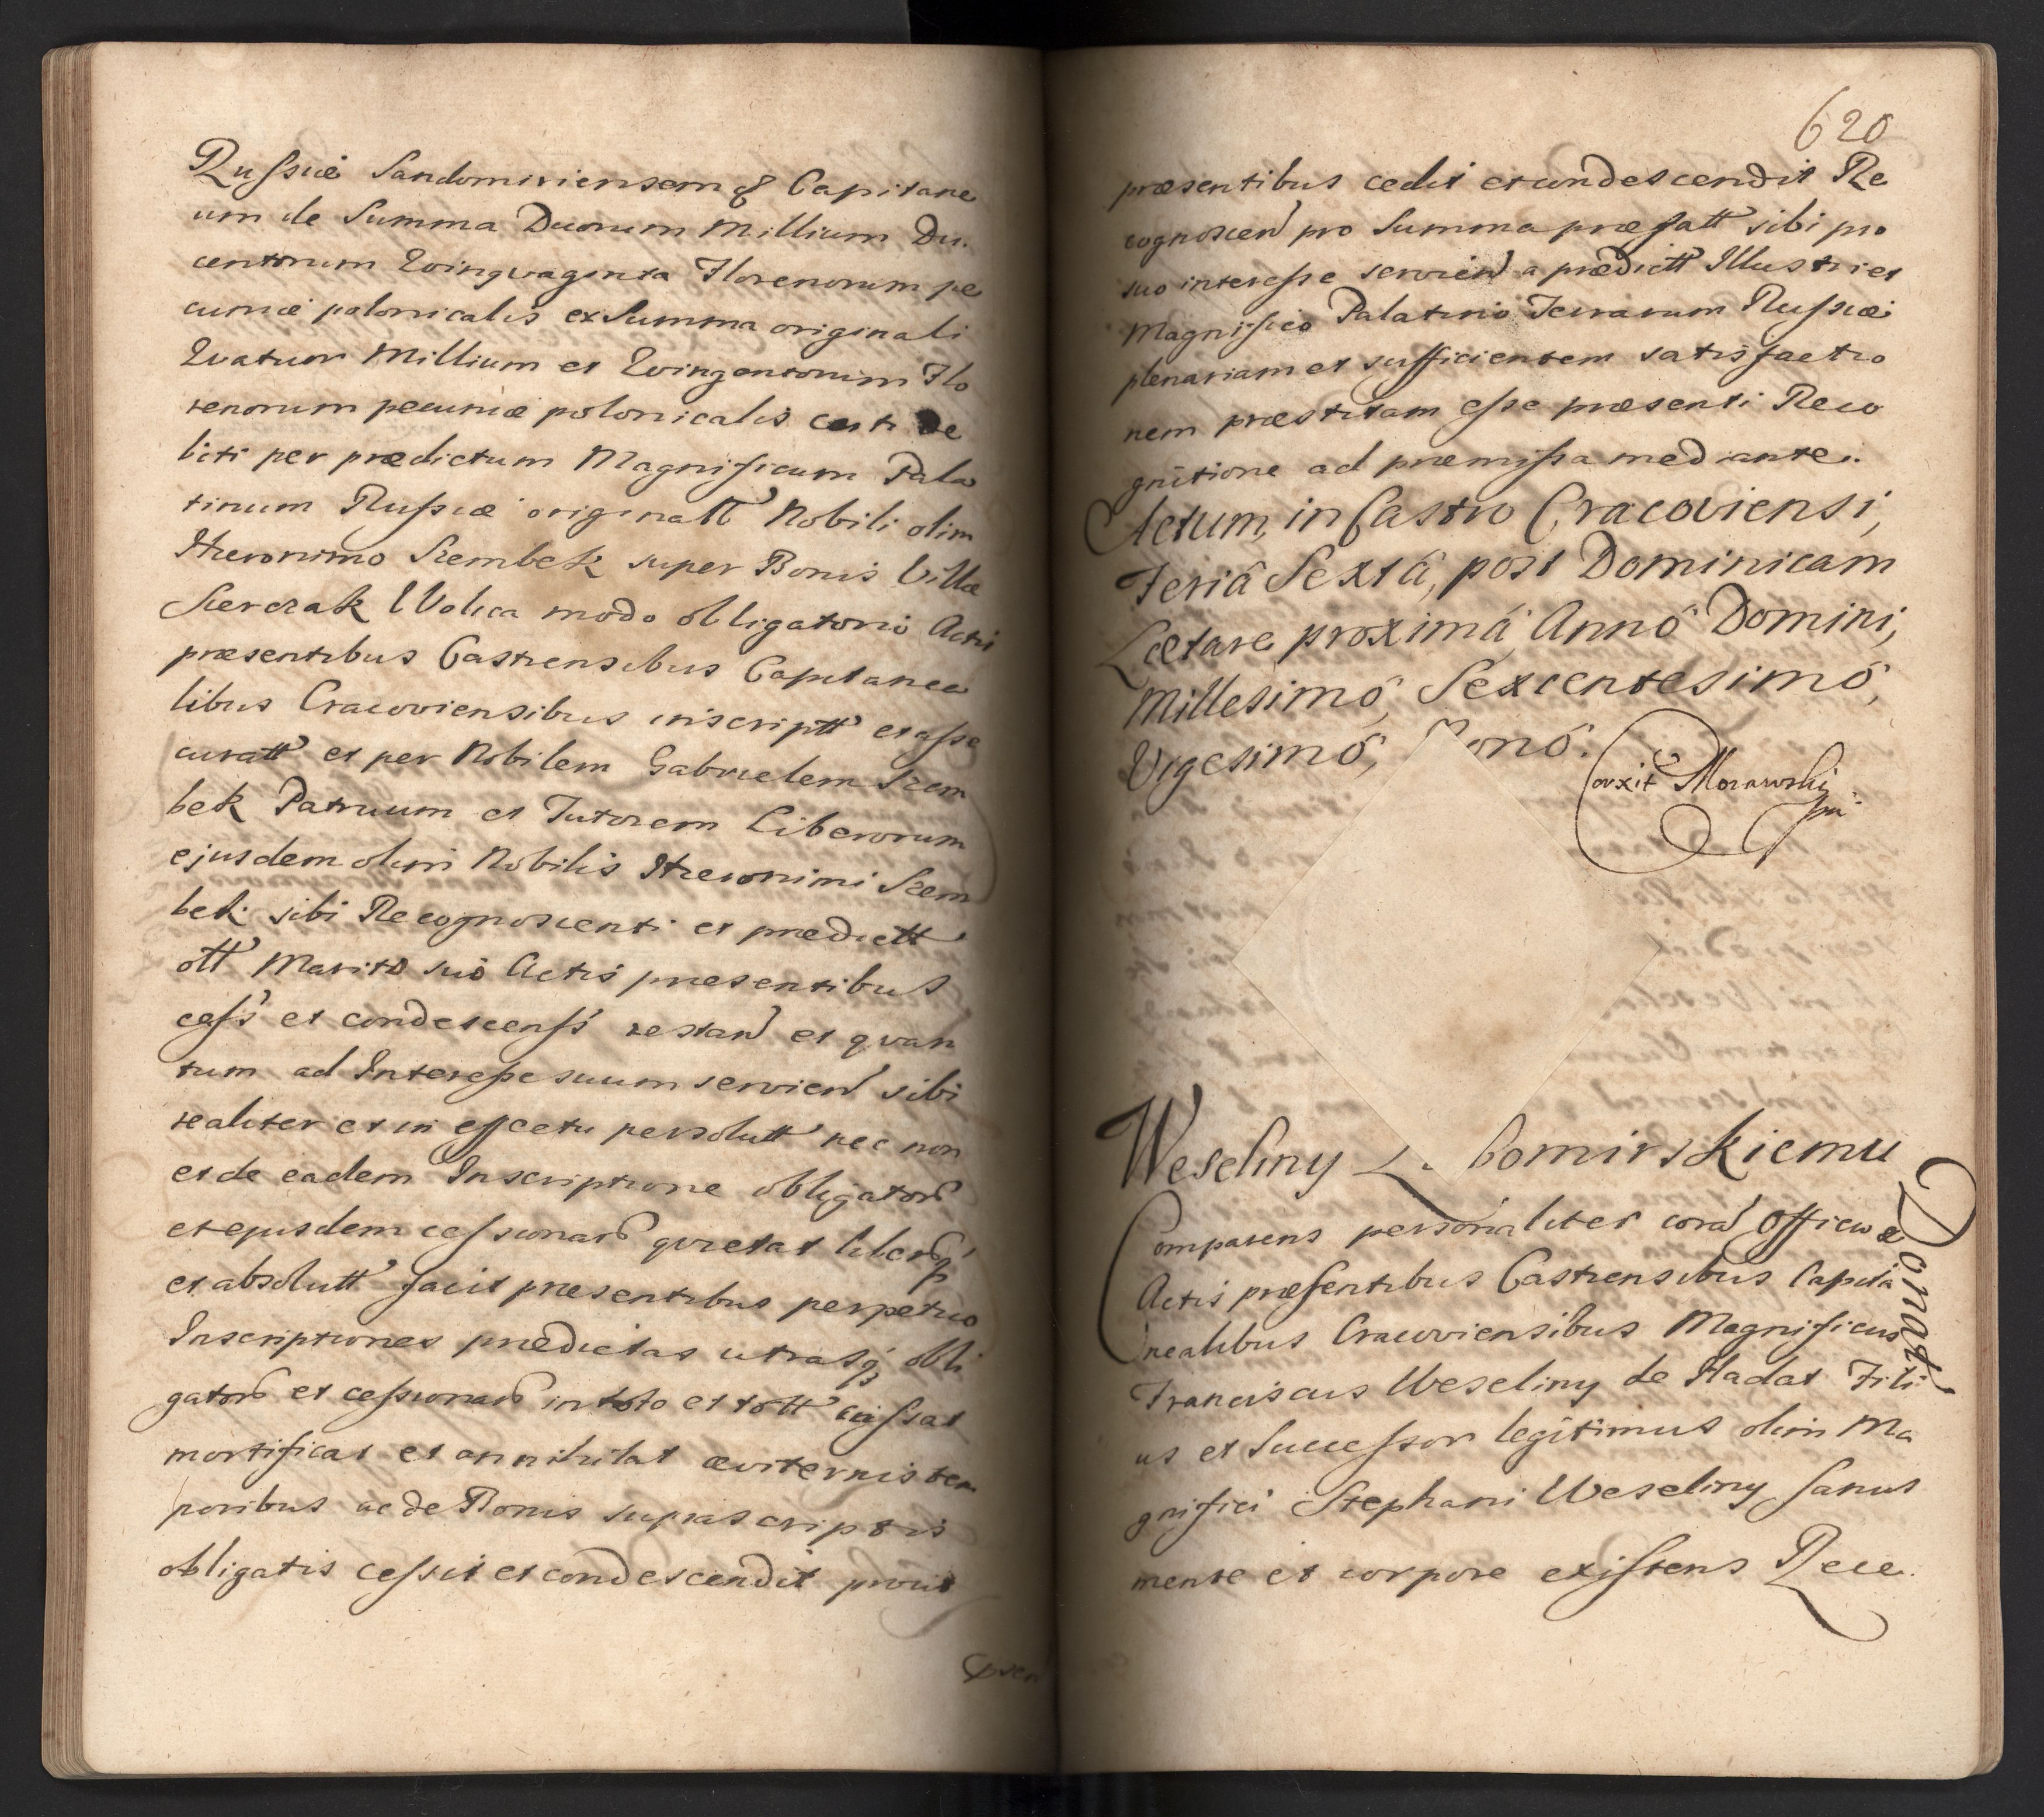 Russiæ Sandomiriensem & Capitane
um de Summa Duorum Millium Du
centorum Quinquaginta Florenorum pe
cuniæ polonicalis ex Summa originali
Quatuor Millium et Quingentorum Flo
renorum pecuniæ polonicalis certi de
biti per prædictum Magnificum Pala
tinum Russiæ originatt Nobili olim
Hieronimo Szembek super Bonis Villæ
Siercrak Wolica modo obligatorio Actis
præsentibus Castrensibus Capitanea
libus Cracoviensibus inscriptt et asse
curatt et per Nobilem Gabrielem Szem
bek Patruum et Tutorem Liberorum
ejusdem olim Nobilis Hieronimi Szem
bek sibi Recognoscenti et prædictt
ott Marito suo Actis præsentibus
cess et condescenss restan et quan
tum ad Interesse suum servien sibi
realiter et in effectu persolutt nec non
et de eadem Inscriptione obligator
et ejusdem cessionar quietat liberq
et absolutt facit præsentibus perpetuo
Inscriptiones prædictas utrasq obli
gator et cessionar in toto et tott cassat
mortificat et annihilat æviternis tem
poribus ac de Bonis suprascriptis
obligatis cessit et condescendit prout
præs
620
præsentibus cedit et condescendit Re
cognoscen pro Summa præfatt sibi pro
suo interesse servien a prædictt Illustri et
Magnifico Palatino Terrarum Russiæ
plenariam et sufficientem satisfactio
nem præstitam esse præsenti Reco
gnitione ad præmissa mediante.
Actum, in Castro Cracoviensi,
Feriâ Sextâ, post Dominicam
Lætare proximâ Annô Domini,
Millesimô, Sexcentesimô,
Vigesimô, Nonô.
Corxit Morawski
mp
Weseliny Lubomirskiemu
Donatt
Comparens personaliter cora Officio &
Actis præsentibus Castrensibus Capita
nealibus Cracoviensibus Magnificus
Franciscus Weseliny de Hadat Fili
us et Successor legitimus olim Ma
gnifici Stephani Weseliny sanus
mente et corpore existens Rece